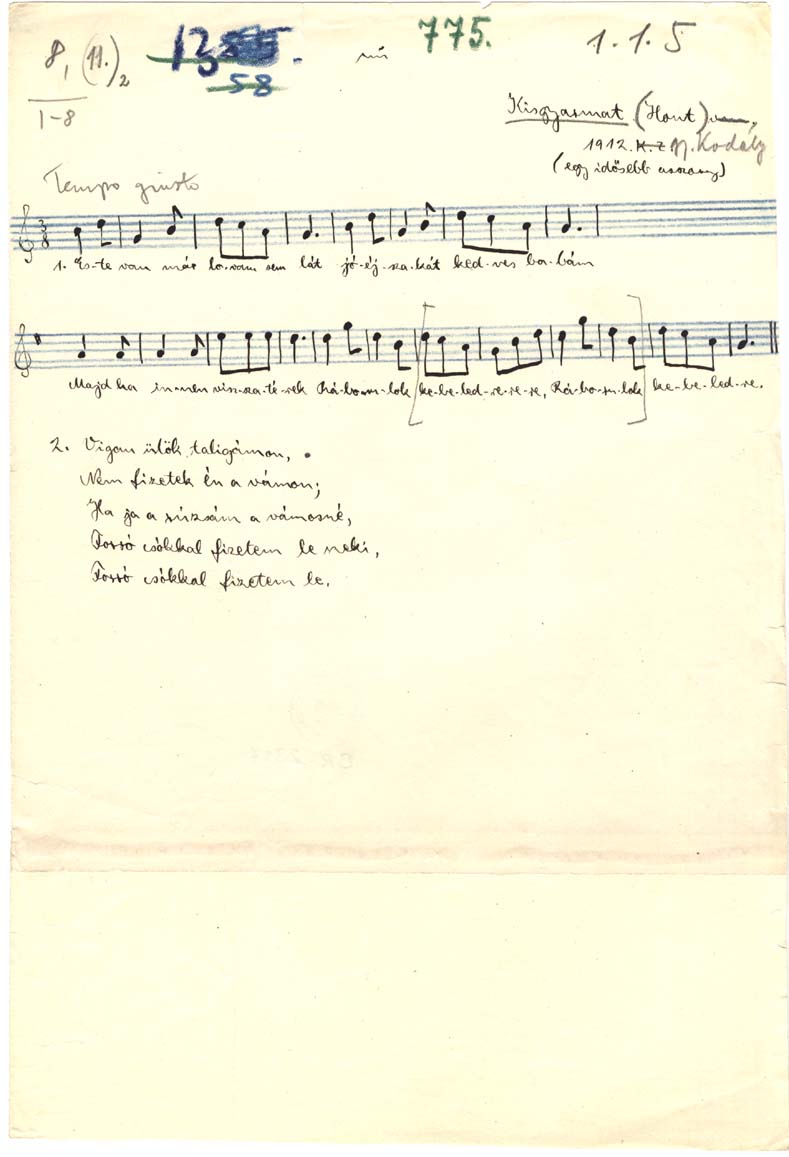 8, (11.)2
I-8
13
58
775.
1.1.5
Kisgyarmat (Hont)
1912. K. Z. Kodály
(egy idősebb asszony)
Tempo giusto
3/8
1. Es-te van már lo-vam sem lát jó-éj-sza-kát ked-ves ba-bám
Majd ha in-nen visz-sza-té-rek Rá-bo-ru-lok ke-be-led-re-re-re, Rá-bo-ru-lok ke-be-led-re.
2. Vigan ülök taligámon,
Nem fizetek én a vámon;
Ha ja a rúzsám a vámosné,
Forró csókkal fizetem le neki,
Forró csókkal fizetem le.